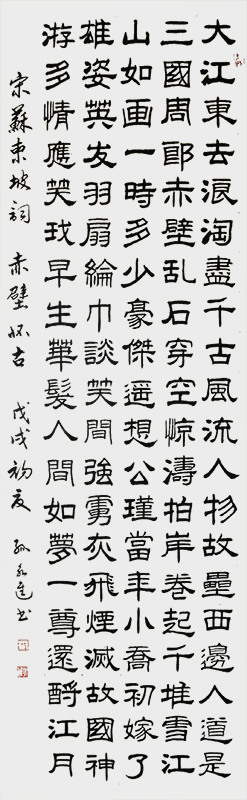 大江東去浪淘盡千古風流人物故壘西邊人道是
三國周郎赤壁乱石穿空惊濤拍岸卷起千堆雪江
山如画一時多少豪傑遥想公瑾當年小喬初嫁了
雄姿英发羽扇綸巾談笑間強虜灰飛煙滅故國神
游多情應笑我早生華髮人間如夢一尊還酹江月
宋蘇東坡詞 赤壁怀古 戊戌初夏 孙永進书